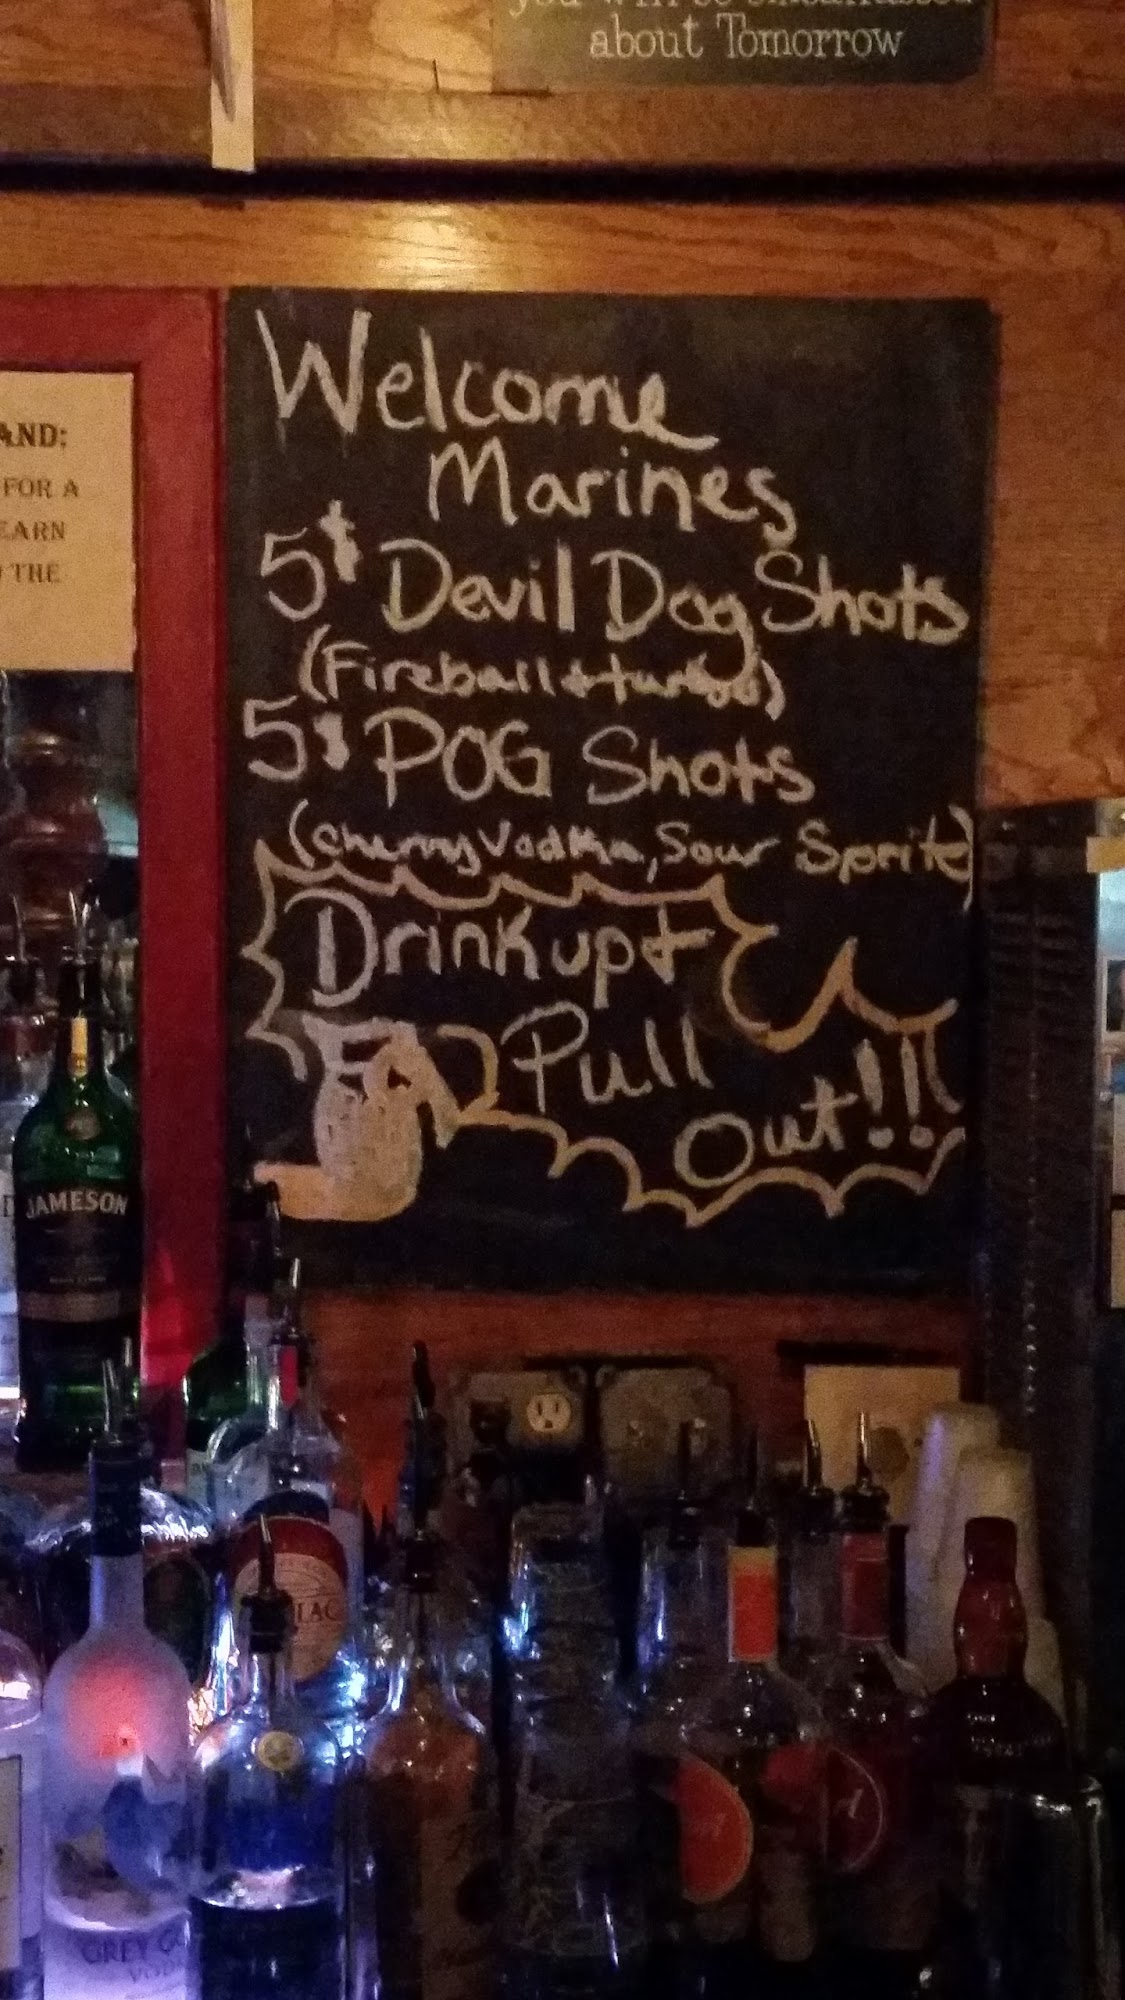 about Tomorrow
AND:
FOR A
EARN
THE
Welcome
Marines
5$ Devil Dog Shots
(Fireball +
5$ POG Shots
(Cherry Vodka, Sour Sprite)
Drink up +
Pull
Out!!!
JAMESON
GREY